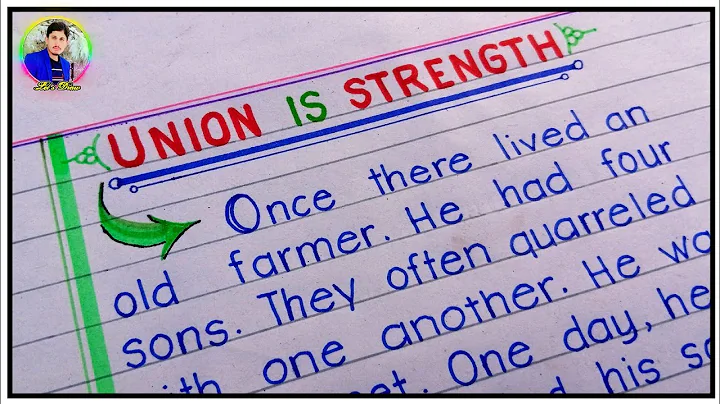 Let's Draw
UNION IS STRENGTH
Once there lived an
old farmer. He had four
sons. They often quarreled
one another. He
One day, he
his